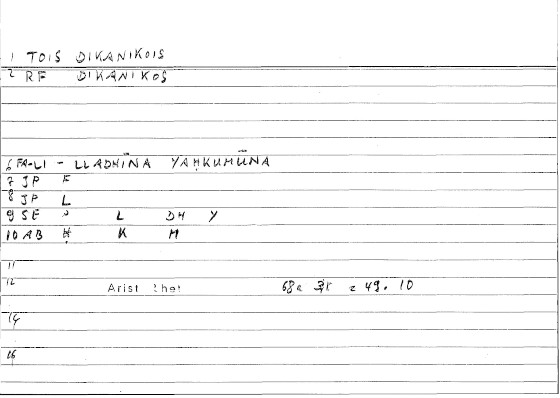 1 TOIS DIKANIKOIS
2 RF DIKANIKOS
6 FA-LI - LLADHĪNA YAḤKUMŪNA
7 JP F
8 JP L
9 SE P L DH Y
10 AB Ḥ K M
11
12 Arist Rhet 68a = 49. 10
14
16